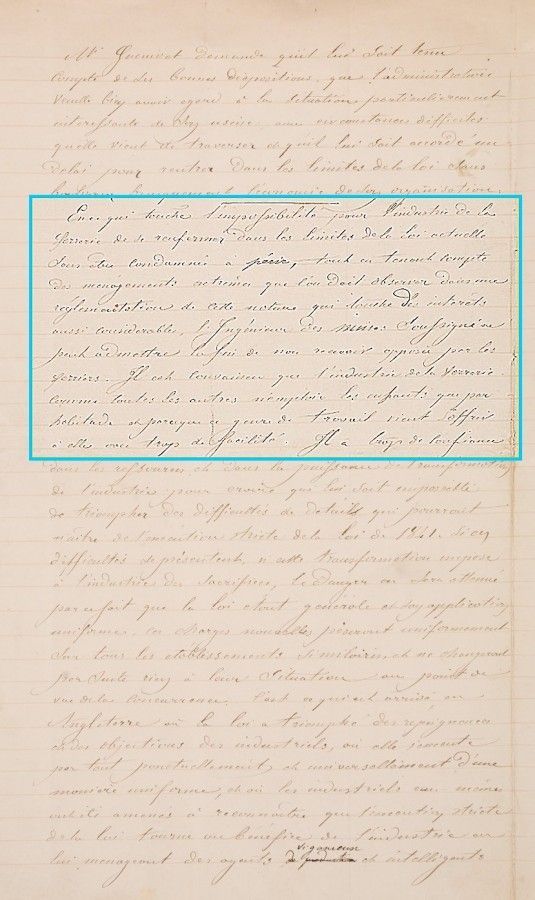 Mr Quenot demande qu'il lui soit tenu
compte de ses bonnes dispositions, que l'administration
veuille bien avoir égard à la situation particulièrement
intéressante de son usine, aux circonstances difficiles
qu'elle vient de traverser et qu'il lui soit accordé un
délai pour rentrer dans les limites de la loi sans
de son organisation.
En ce qui touche l'impossibilité pour l'industrie de la
Verrerie de se renfermer dans les limites de la loi actuelle
sans être condamnée à périr, tout en tenant compte
des ménagements extrêmes que l'on doit observer dans une
réglementation de cette nature qui touche des intérêts
aussi considérables, l'Ingénieur des mines soussigné ne
peut admettre la fin de non recevoir opposée par les
verriers. Il est convaincu que l'industrie de la verrerie
comme toutes les autres n'emploie les enfants que par
habitude et parceque ce genre de travail vient s'offrir
à elle avec trop de facilité. Il a trop de confiance
dans les ressources et dans la puissance de transformation
de l'industrie pour croire que lui soit impossible
de triompher des difficultés de détails qui pourrait
naître de l'exécution stricte de la loi de 1841. Si ces
difficultés se présentent, si cette transformation impose
à l'industrie des sacrifices, le danger en sera atténué
par ce fait que la loi étant générale et son application
uniforme, ces charges nouvelles pèseront uniformément
sur tous les établissements similaires et ne changeront
par suite rien à leur situation au point de
vue de la concurrence. C'est ce qui est arrivé en
Angleterre où la loi a triomphé des répugnances
et des objections des industriels, où elle s'exécute
par tout ponctuellement et universellement d'une
manière uniforme, et où les industriels eux mêmes
ont été amenés à reconnaître que l'exécution stricte
de la loi tourne au bénéfice de l'industrie en
lui ménageant des agents vigoureux et intelligents